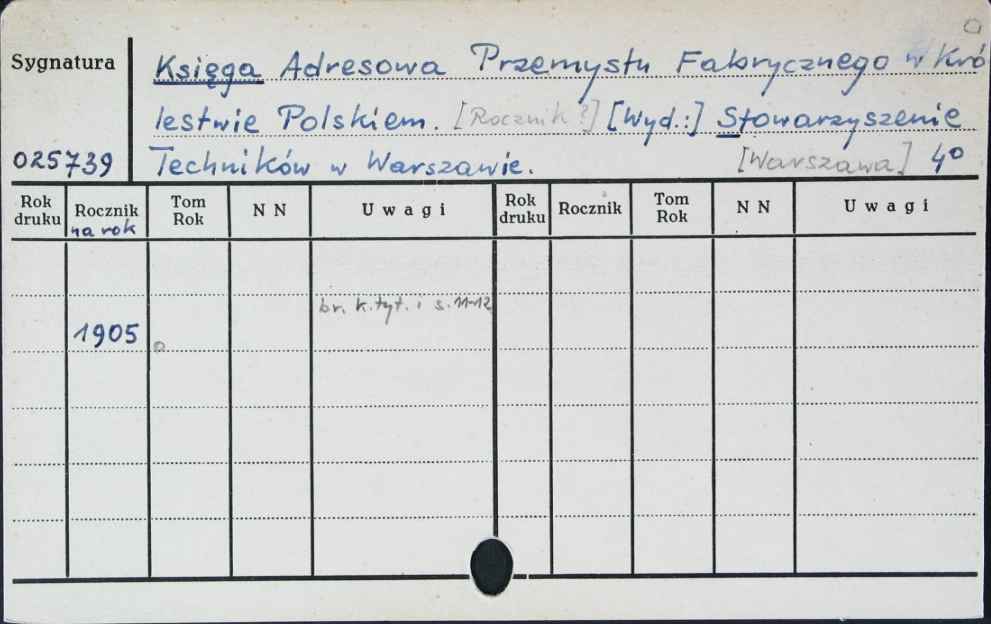 Sygnatura
Księga Adresowa Przemysłu Fabrycznego w Kró
lestwie Polskiem. [Rocznik?] [Wyd.:] Stowarzyszenie
025739 Techników w Warszawie. [Warszawa] 4°
Rok druku Rocznik na rok Tom Rok N N Uwagi Rok druku Rocznik Tom Rok N N Uwagi
br. k. tyt. i s. 11-12
1905